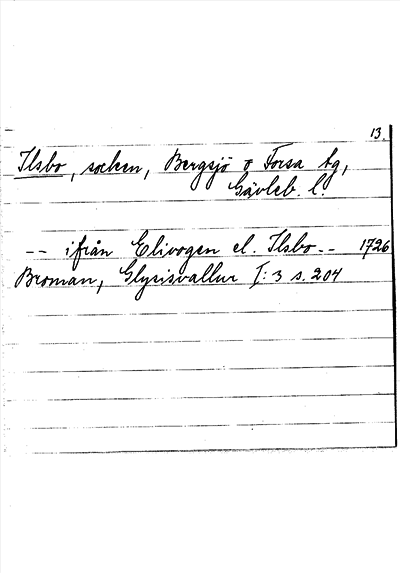 13.
Ilsbo, socken, Bergsjö o Forsa tg,
Gävleb. l.
-- ifrån Elivogen el. Ilsbo -- 1726
Broman, Glysisvallur I:3 s. 204